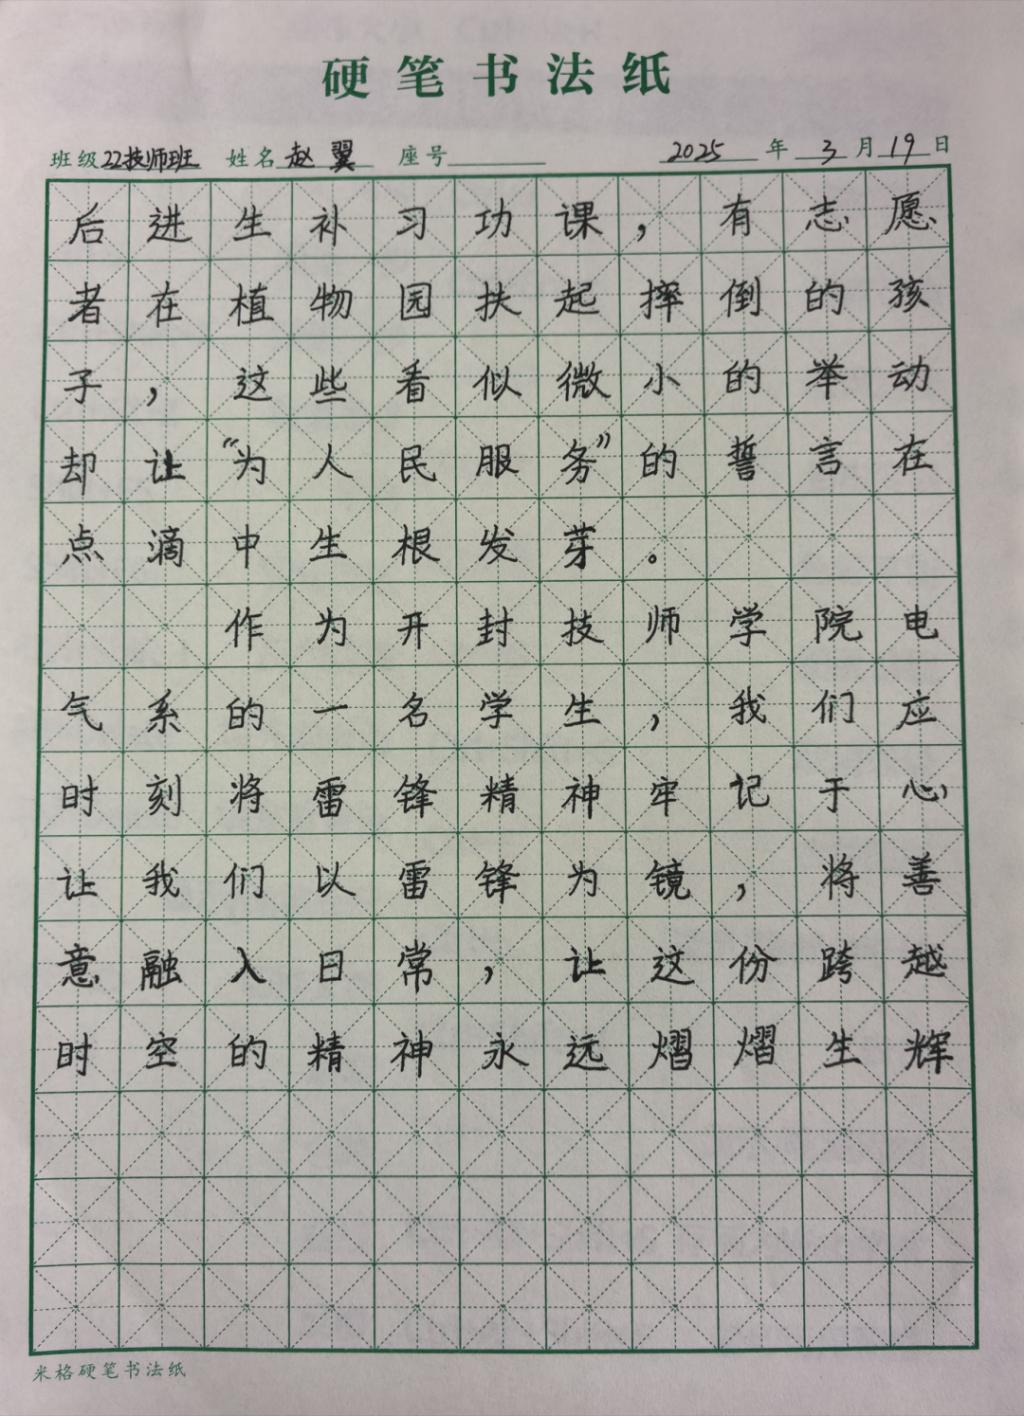 硬笔书法纸
班级22技师班 姓名赵翼 座号 2025年3月19日
后进生补习功课，有志愿
者在植物园扶起摔倒的孩
子，这些看似微小的举动
却让“为人民服务”的誓言在
点滴中生根发芽。
作为开封技师学院电
气系的一名学生，我们应
时刻将雷锋精神牢记于心
让我们以雷锋为镜，将善
意融入日常，让这份跨越
时空的精神永远熠熠生辉
米格硬笔书法纸